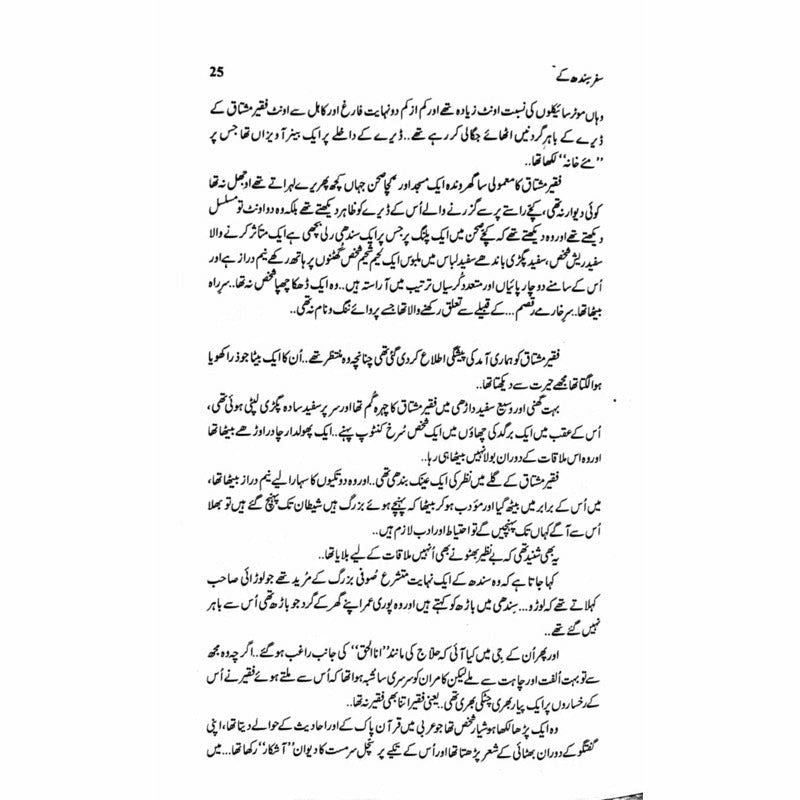 سفر سندھ کے
25
وہاں موٹرسائیکلوں کی نسبت اونٹ زیادہ تھے اور کم از کم دو نہایت فارغ اور کاہل سے اونٹ فقیر مشتاق کے
ڈیرے کے باہر گردنیں اٹھائے جگالی کر رہے تھے.. ڈیرے کے داخلے پر ایک بینر آویزاں تھا جس پر
”مئے خانہ“ لکھا تھا..
فقیر مشتاق کا معمولی سا گھروندہ ایک مسجد اور کچا صحن جہاں کچھ پھریرے لہراتے تھے اوجھل نہ تھا
کوئی دیوار نہ تھی، کچے راستے پر سے گزرنے والے اُس کے ڈیرے کو ظاہر دیکھتے تھے بلکہ وہ دو اونٹ تو مسلسل
دیکھتے تھے اور وہ دیکھتے تھے کہ کچے صحن میں ایک پلنگ پر جس پر ایک سندھی رلی بچھی ہے ایک متاثر کرنے والا
سفید ریش شخص، سفید پگڑی باندھے سفید لباس میں ملبوس ایک لحیم شحیم شخص گھٹنوں پر ہاتھ رکھے نیم دراز ہے اور
اُس کے سامنے دو چارپائیاں اور متعدد کُرسیاں ترتیب میں آراستہ ہیں.. وہ ایک ڈھکا چھپا شخص نہ تھا.. سرِراہ
بیٹھا تھا.. سرِ خار مے رقصم... کے قبیلے سے تعلق رکھنے والا تھا جسے پروائے ننگ و نام نہ تھی..
فقیر مشتاق کو ہماری آمد کی پیشگی اطلاع کر دی گئی تھی چنانچہ وہ منتظر تھے.. اُن کا ایک بیٹا جو ذرا کھویا
ہوا لگتا تھا مجھے حیرت سے دیکھتا تھا..
بہت گھنی اور وسیع سفید داڑھی میں فقیر مشتاق کا چہرہ گم تھا اور سر پر سفید سادہ پگڑی لپٹی ہوئی تھی،
اُس کے عقب میں ایک برگد کی چھاؤں میں ایک شخص سُرخ کنٹوپ پہنے.. ایک پھولدار چادر اوڑھے بیٹھا تھا
اور وہ اس ملاقات کے دوران بولا نہیں بیٹھا ہی رہا..
فقیر مشتاق کے گلے میں نظر کی ایک عینک بندھی تھی.. اور وہ دو تکیوں کا سہارا لیے نیم دراز بیٹھا تھا،
میں اُس کے برابر میں بیٹھ گیا اور مؤدب ہو کر بیٹھا کہ پہنچے ہوئے بزرگ ہیں شیطان تک پہنچ گئے ہیں تو بھلا
اُس سے آگے کہاں تک پہنچیں گے تو احتیاط اور ادب لازم ہیں..
یہ بھی شنید تھی کہ بے نظیر بھٹو نے بھی اُنہیں ملاقات کے لیے بلایا تھا..
کہا جاتا ہے کہ وہ سندھ کے ایک نہایت متشرع صُوفی بزرگ کے مُرید تھے جو لوڑائی صاحب
کہلاتے تھے کہ لوڑو... سندھی میں باڑھ کو کہتے ہیں اور وہ پوری عمر اپنے گھر کے گرد جو باڑھ تھی اُس سے باہر
نہیں گئے تھے..
اور پھر اُن کے جی میں کیا آئی کہ حلاج کی مانند ”انا الحق“ کی جانب راغب ہو گئے.. اگرچہ وہ مجھ
سے تو بہت اُلفت اور چاہت سے ملے لیکن کامران کو سرسری سا شبہ ہوا تھا کہ اُس سے ملتے ہوئے فقیر نے اُس
کے رخساروں پر ایک پیار بھری چٹکی بھری تھی.. یعنی فقیر اتنا بھی فقیر نہ تھا..
وہ ایک پڑھا لکھا ہوشیار شخص تھا جو عربی میں قرآن پاک کے اور احادیث کے حوالے دیتا تھا، اپنی
گفتگو کے دوران بھٹائی کے شعر پڑھتا تھا اور اُس کے تکیے پر سچل سرمست کا دیوان ”آشکار“ رکھا تھا... میں